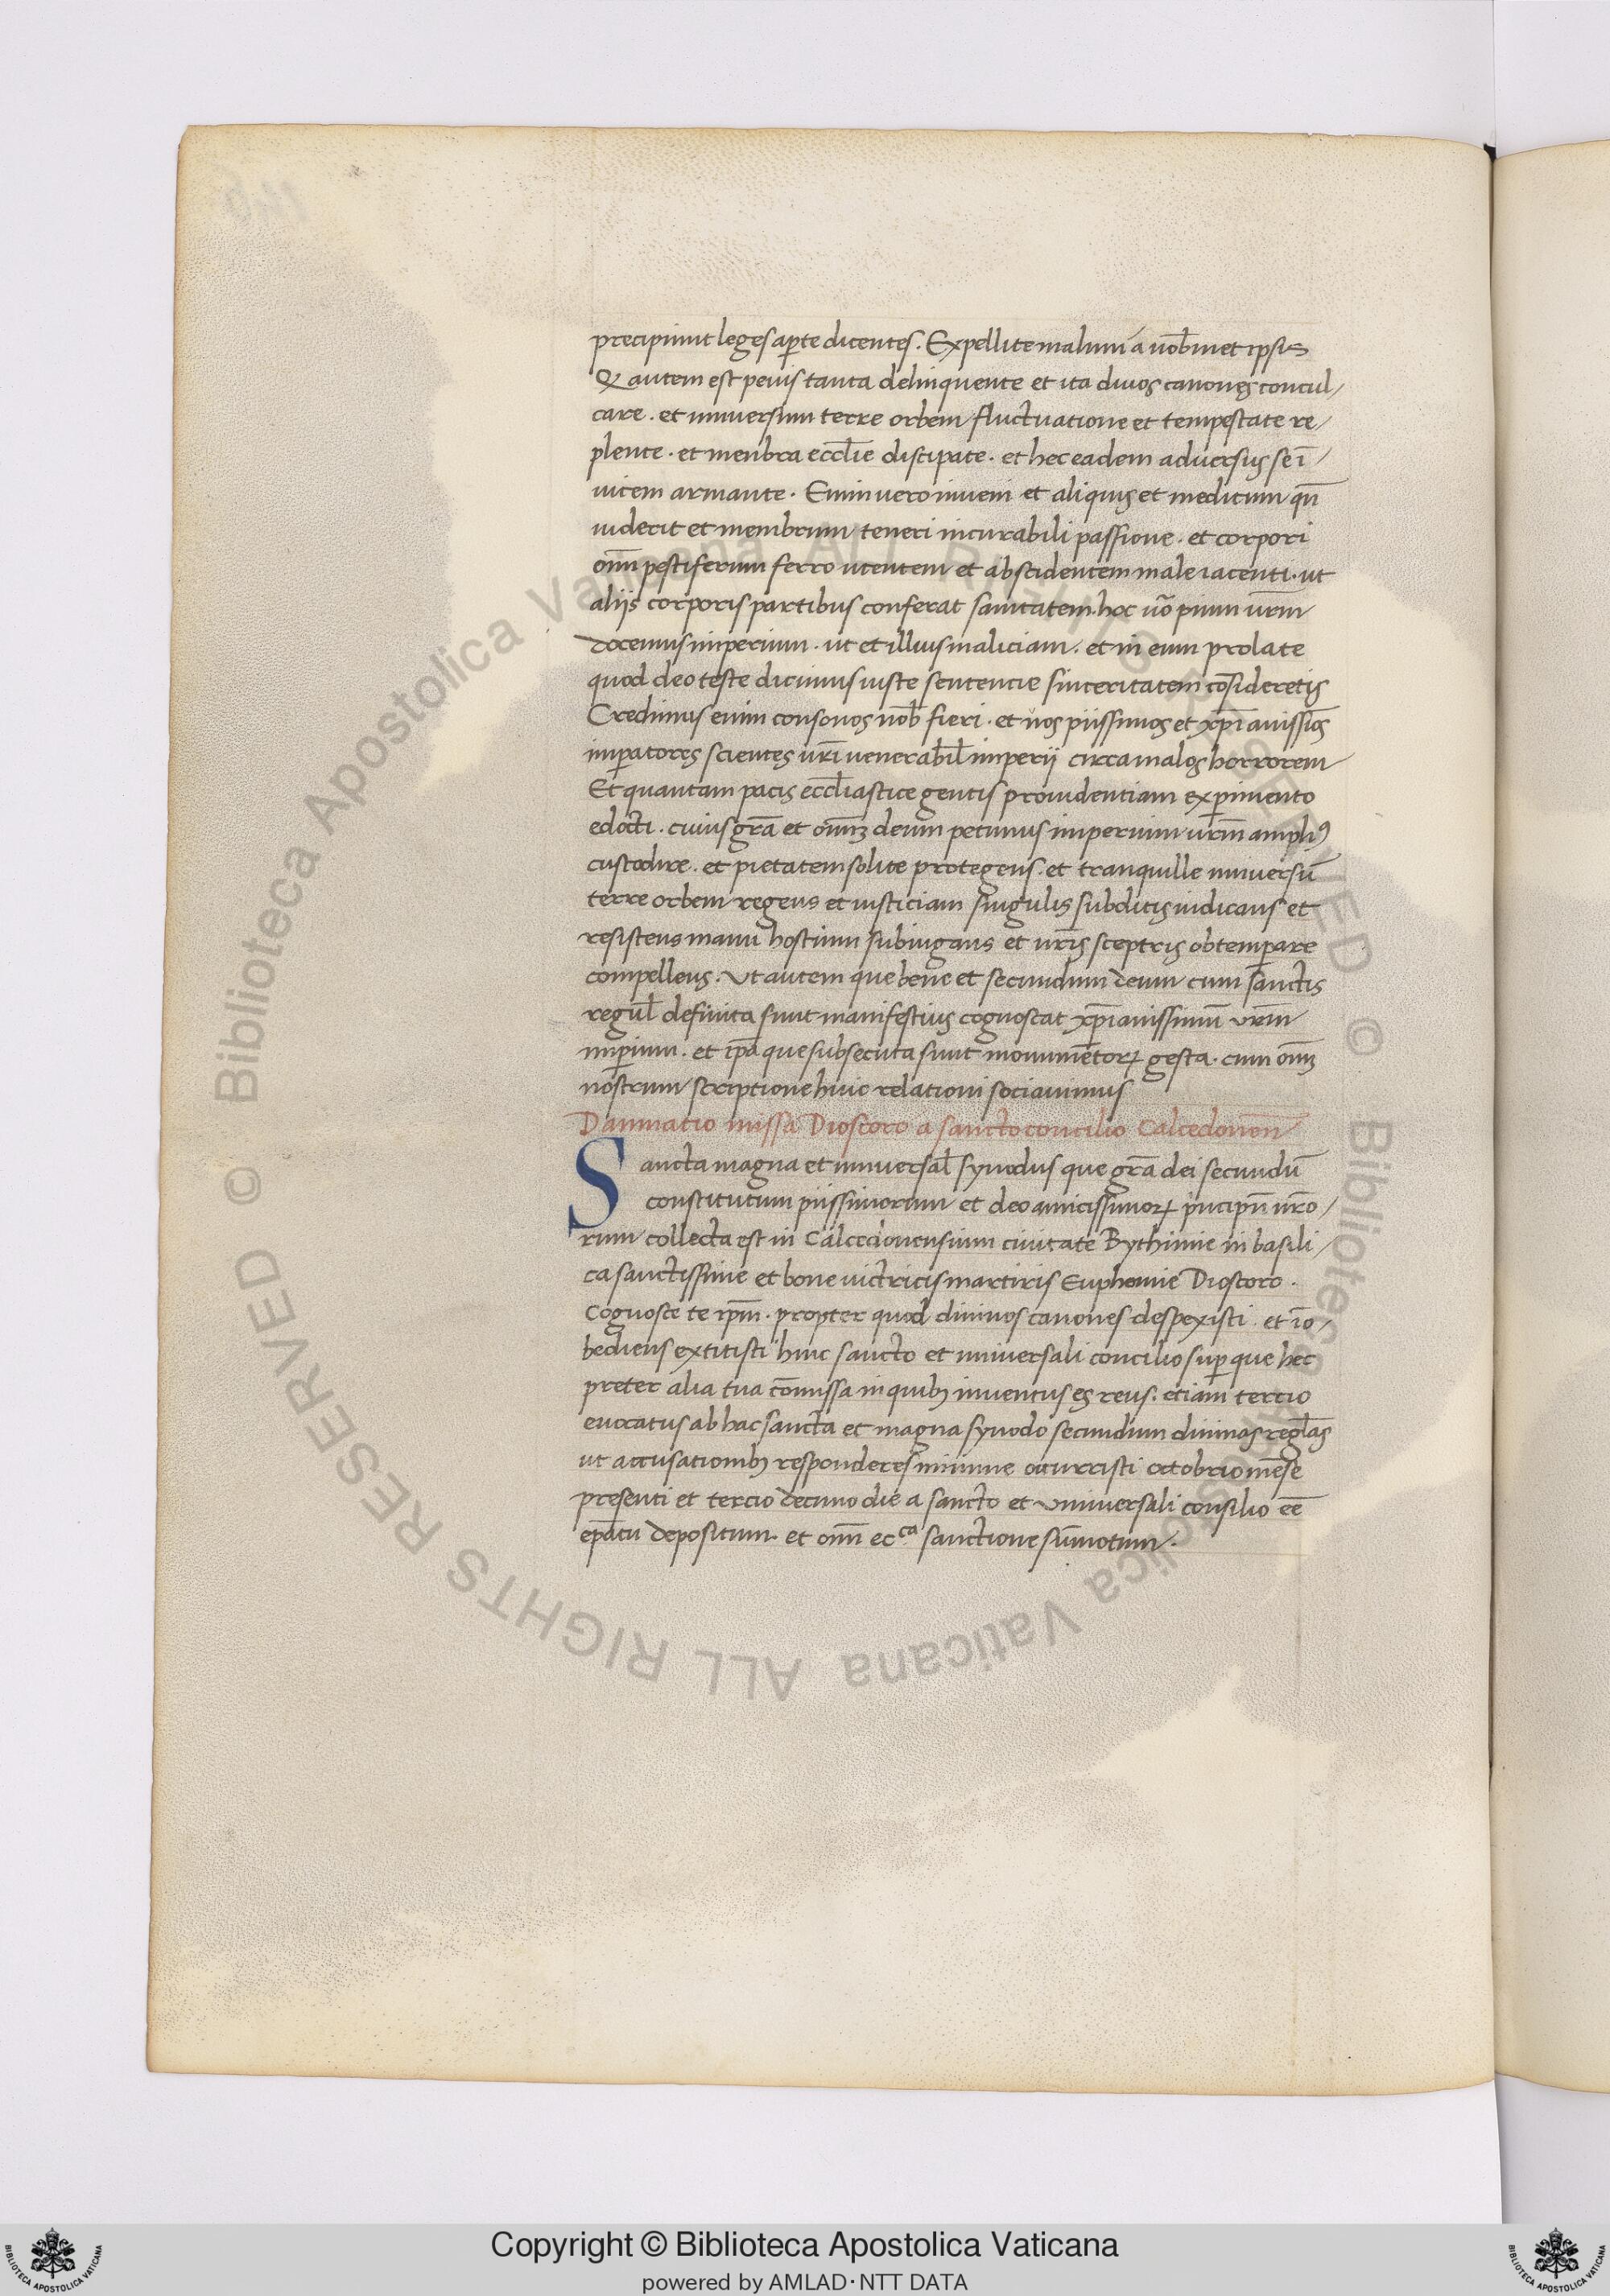 precipiunt leges aperte dicentes. Expellite malum a uob̄met ipsis
Q autem est peius tanta delinquente et ita diuos canones concul/
care. et uniuersum terre orbem fluctuatione et tempestate re/
plente. et menbra eccl̄ie discipate. et hec eadem aduersus se ī/
uicem armante. Enim uero inueni et aliquis et medicum qn̄
uiderit et membrum teneri incurabili passione. et corpori
om̄ pestiferum ferro utentem et abscidentem male iacenti. ut
alijs corporis partibus conferat sanitatem. hoc uō pium ur̄m
docemus imperium. ut et illius maliciam. et in eum prolate
quod deo teste dicimus iuste sentencie sinceritatem cōsideretis
Credimus enim consonos nob̄ fieri. et uos piissimos et xp̄ianissīos
imp̄atores scientes ur̄i venerabil̄ imperij circa malos horrorem
Et quantam pacis eccl̄iastice gentis prouidentiam exp̄imento
edocti. cuius gr̄a et om̄ꝫ deum petimus imperium ur̄m ampliꝰ
custodire. et pietatem solite protegens. et tranquille uniuersū
terre orbem regens et iusticiam singulis subditis iudicans et
resistens manu hostium subiugans et ur̄is sceptris obtemp̄are
compellens. Ut autem que bene et secundum deum cum sanctis
regul̄ definita sunt manifestius cognoscat xp̄ianissimū ur̄m
imp̄ium. et ip̄a que subsecuta sunt monumētoꝝ gesta. cum om̄ꝫ
nostrum scriptione huic relationi sociauimus
Damnatio missa Dioscoro a sancto concilio Calcedonen̄
Sancta magna et uniuersal̄ synodus que gr̄a dei secundū
constitutum piissimorum et deo amicissimoꝝ p̄ncipū nr̄o/
rum collecta est in Calcedonensium ciuitate Bythinie in basili/
ca sanctissime et bone uictricis martiris Euphomie Dioscoro.
Cognosce te ip̄m. propter quod diuinos canones despexisti. et īo/
bediens extitisti huic sancto et uniuersali concilio sup̄ que hec
preter alia tua cōmissa in quibꝫ inuentus es reus. etiam tercio
euocatus ab hac sancta et magna synodo secundum diuinas regl̄as
ut accusationibꝫ responderes minime occurristi octobrio mēse
presenti et tercio decimo die a sancto et uniuersali consilio eē
ep̄atu depositum. et om̄ ec.ca sanctione sūmotum.
Copyright © Biblioteca Apostolica Vaticana
powered by AMLAD·NTT DATA
© Biblioteca Apostolica Vaticana ALL RIGHTS RESERVED © Biblioteca Apostolica Vaticana ALL RIGHTS RESERVED